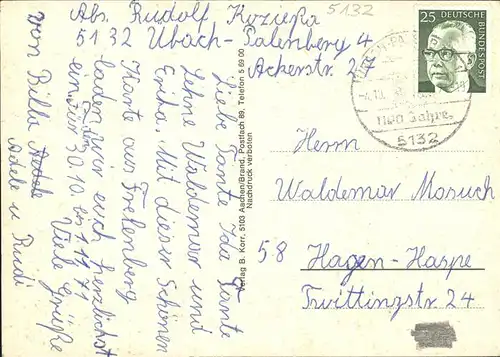 Abs. Rudolf Kozießa
5132
5132 Ubach-Palenberg 4
Ackerstr. 27
Liebe Tante Ida Tante
Lehne Waldemar und
Erika. Mit dieser Schönen
Karte aus Frelenberg
laden wir euch herzlichst
ein. Für 30.10 bis 1.11.71
Viele Grüße
von Billa
Adele u Rudi
Verlag B. Korr, 5103 Aachen/Brand, Postfach 89, Telefon 5 69 00
Nachdruck verboten
25 DEUTSCHE
BUNDESPOST
1100 Jahre
5132
Herrn
Waldemar Mosuch
58 Hagen-Haspe
Twittingstr. 24